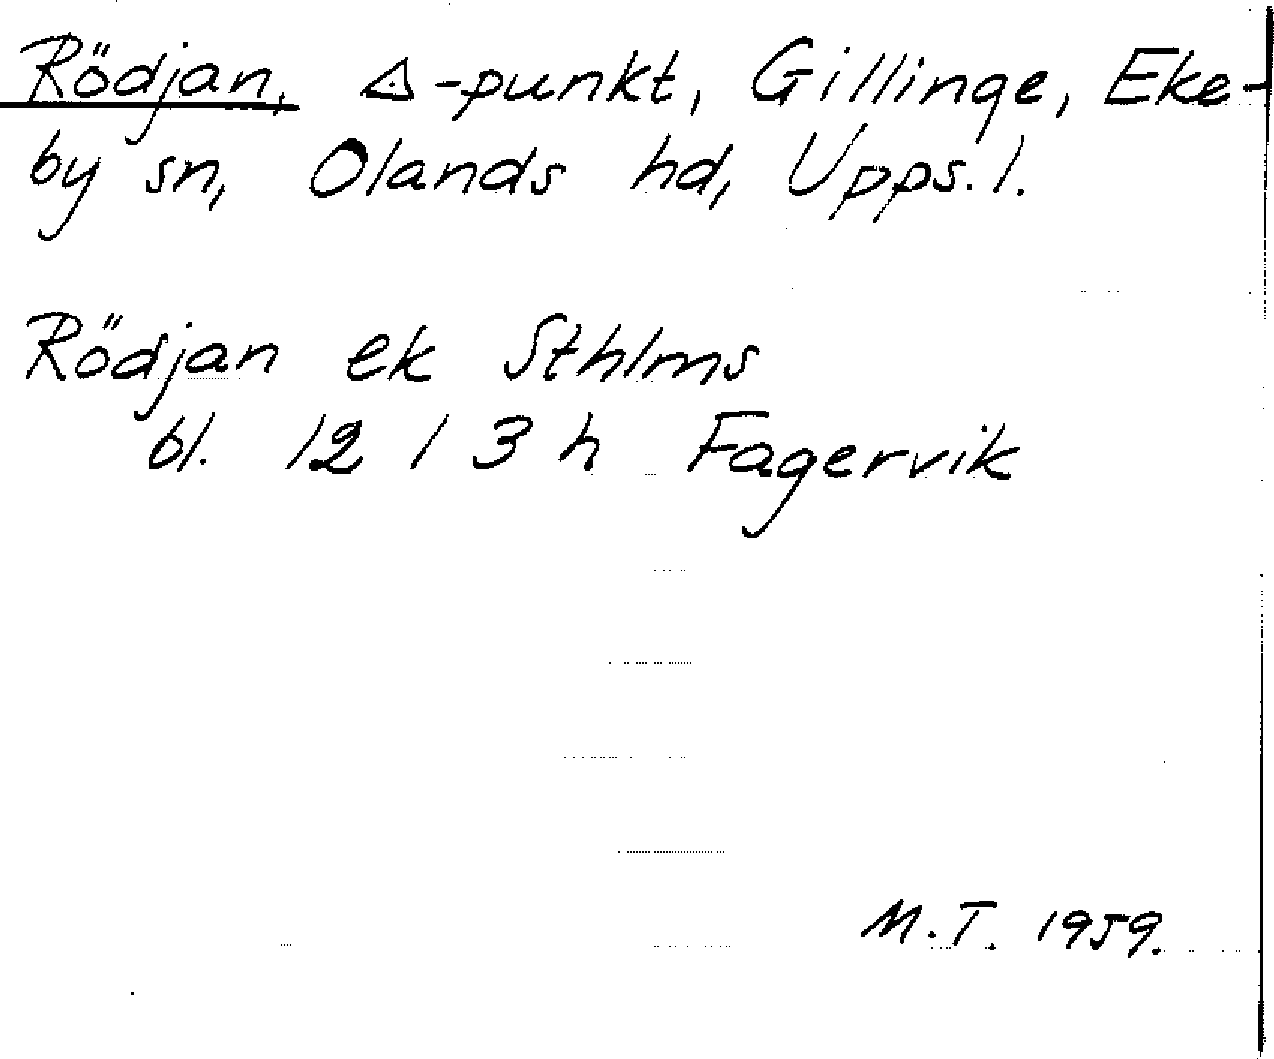 Rödjan, △-punkt, Gillinge, Eke-
by sn, Olands hd, Upps. l.
Rödjan ek Sthlms
bl. 12 I 3 h Fagervik
M.T. 1959.